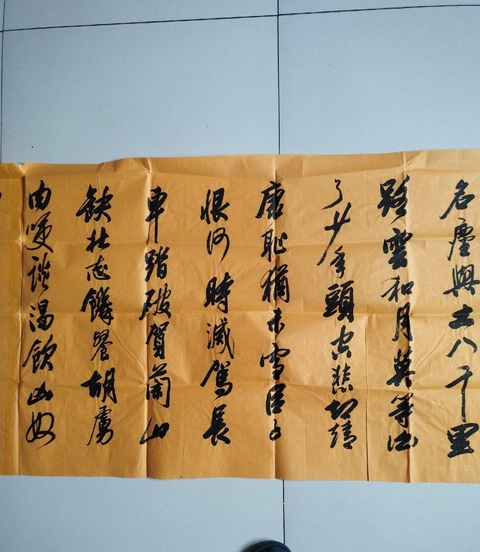 名塵與土八千里
路雲和月莫等
了少年頭空悲切靖
康恥猶未雪臣子
恨何時滅駕長
車踏破賀蘭山
缺壯志饑餐胡虜
肉笑談渴飲匈奴